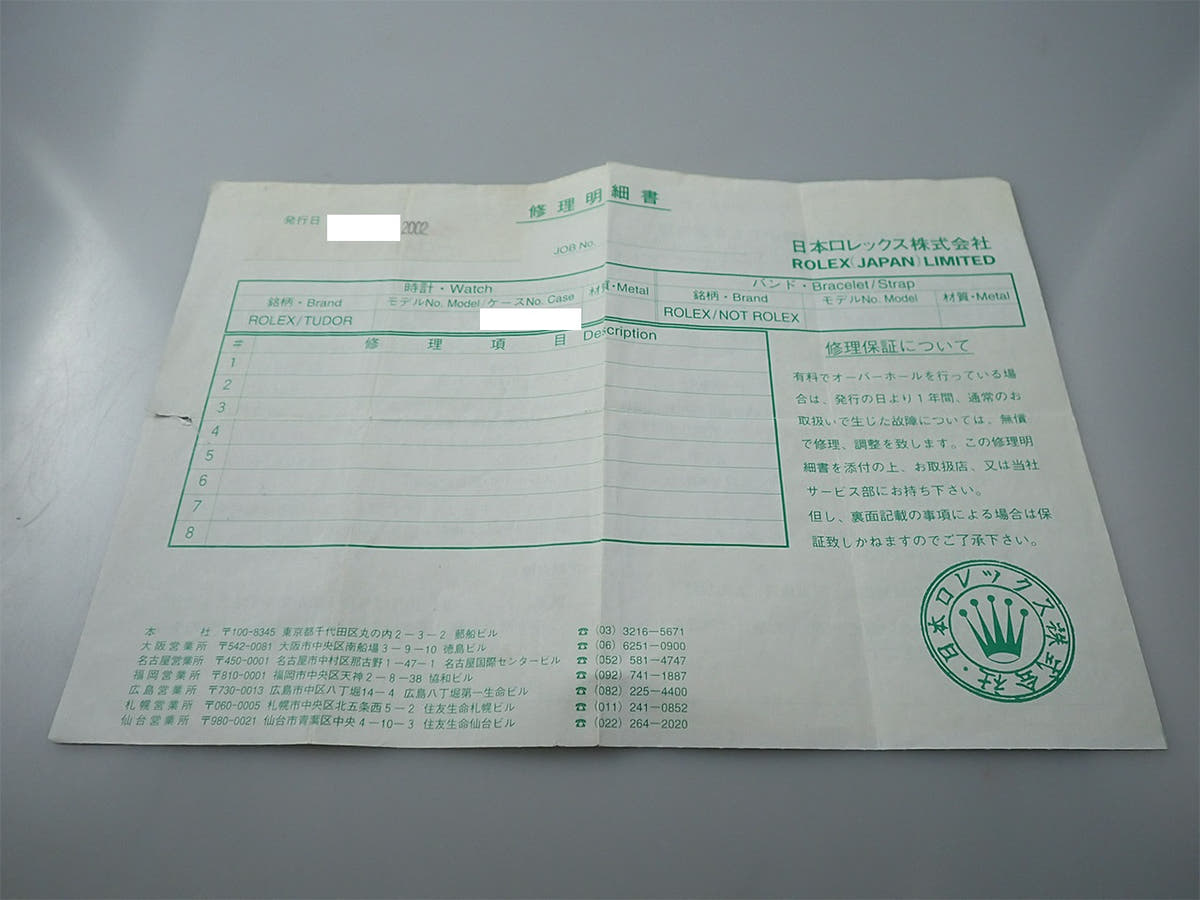 修理明細書
発行日 2002
JOB No.
日本ロレックス株式会社
ROLEX(JAPAN)LIMITED
時計・Watch
バンド・Bracelet/Strap
銘柄・Brand
モデルNo. Model/ケースNo. Case
材質・Metal
銘柄・Brand
モデルNo. Model
材質・Metal
ROLEX/TUDOR
ROLEX/NOT ROLEX
# 修理項目 Description
1
2
3
4
5
6
7
8
修理保証について
有料でオーバーホールを行っている場
合は、発行の日より1年間、通常のお
取扱いで生じた故障については、無償
で修理、調整を致します。この修理明
細書を添付の上、お取扱店、又は当社
サービス部にお持ち下さい。
但し、裏面記載の事項による場合は保
証致しかねますのでご了承下さい。
本社 〒100-8345 東京都千代田区丸の内2-3-2 郵船ビル ☎ (03) 3216-5671
大阪営業所 〒542-0081 大阪市中央区南船場3-9-10 徳島ビル ☎ (06) 6251-0900
名古屋営業所 〒450-0001 名古屋市中村区那古野1-47-1 名古屋国際センタービル ☎ (052) 581-4747
福岡営業所 〒810-0001 福岡市中央区天神2-8-38 協和ビル ☎ (092) 741-1887
広島営業所 〒730-0013 広島市中区八丁堀14-4 広島八丁堀第一生命ビル ☎ (082) 225-4400
札幌営業所 〒060-0005 札幌市中央区北五条西5-2 住友生命札幌ビル ☎ (011) 241-0852
仙台営業所 〒980-0021 仙台市青葉区中央4-10-3 住友生命仙台ビル ☎ (022) 264-2020
日本ロレックス株式会社・